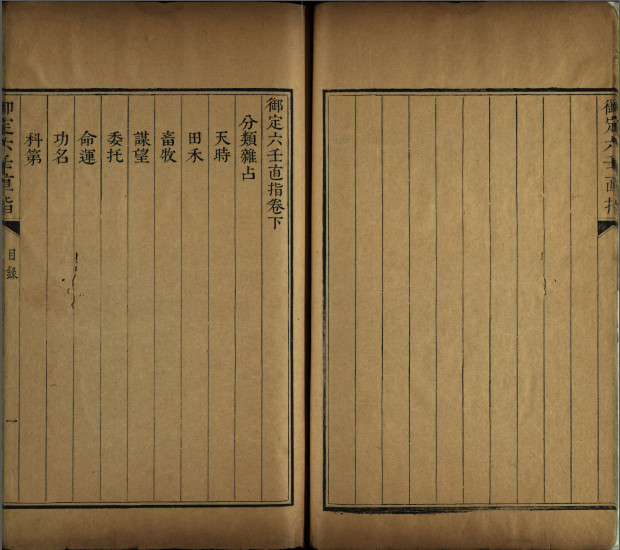 御定六壬直指
御定六壬直指卷下
分類雜占
天時
田禾
畜牧
謀望
委托
命運
功名
科第
御定六壬直指
目錄
一